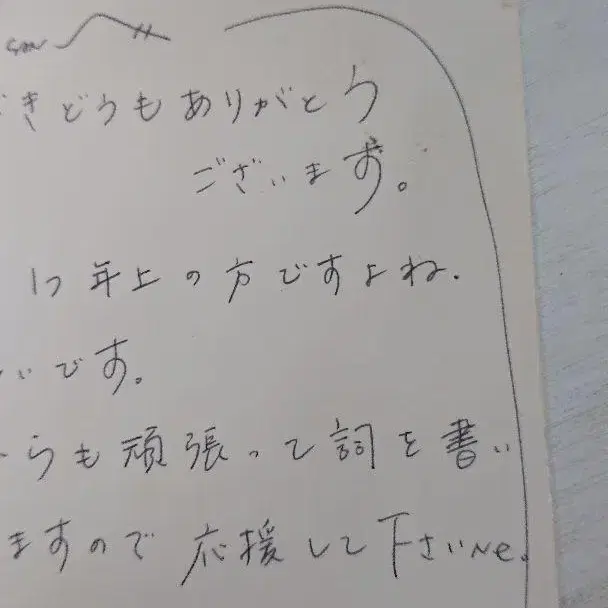 きどうもありがとう
ございます。
1つ年上の方ですよね.
いです。
らも頑張って詞を書い
ますので応援して下さいNe.